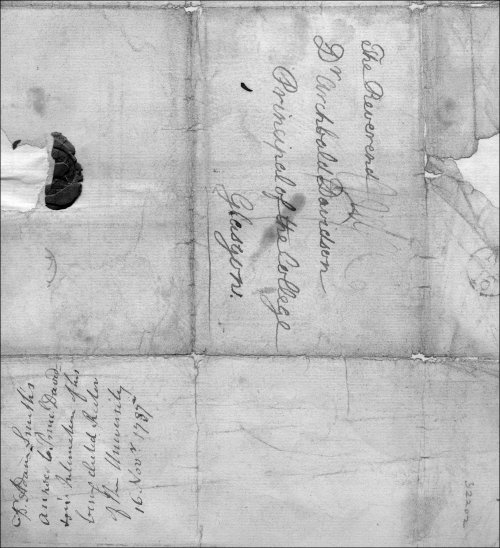 The Reverend
Dr. Archbald Davidson
Principal of the College
Glasgow.
Dr. Adam Smith's
answer to Princl. David-
son's Intimation of his
being elected Rector
of the University
16. Novr. 1787